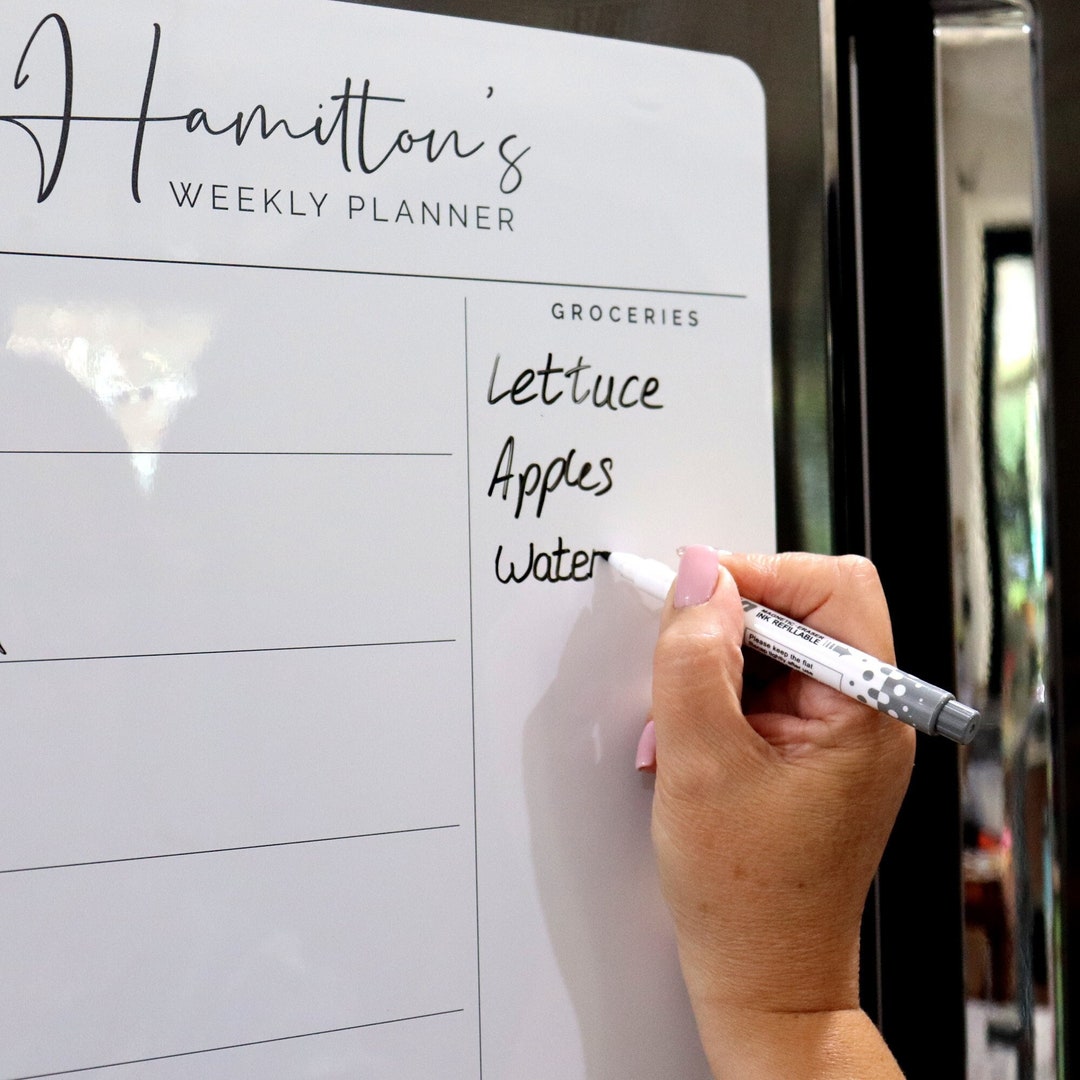 Hamilton's
WEEKLY PLANNER
GROCERIES
Lettuce
Apples
Water
MAGNETIC ERASER
INK REFILLABLE
Please keep the flat